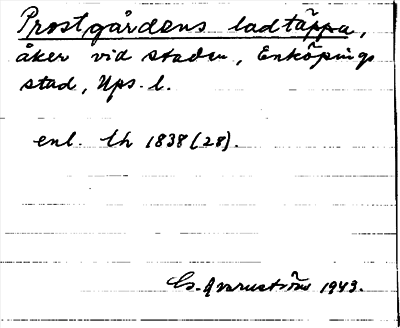 Prostgårdens ladtäppa,
åker vid staden, Enköpings
stad, Ups. l.
enl. lh 1838 (28).
G. Qvarnström 1943.